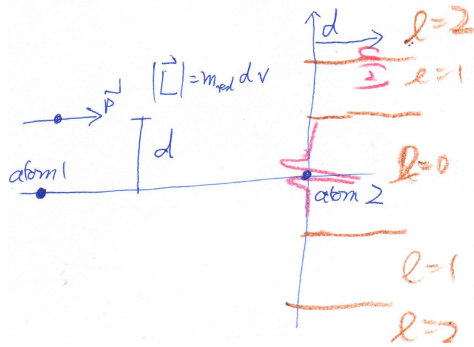 d
l=2
l=1
p
|L|=m_red d v
d
atom 1
l=0
atom 2
l=1
l=2